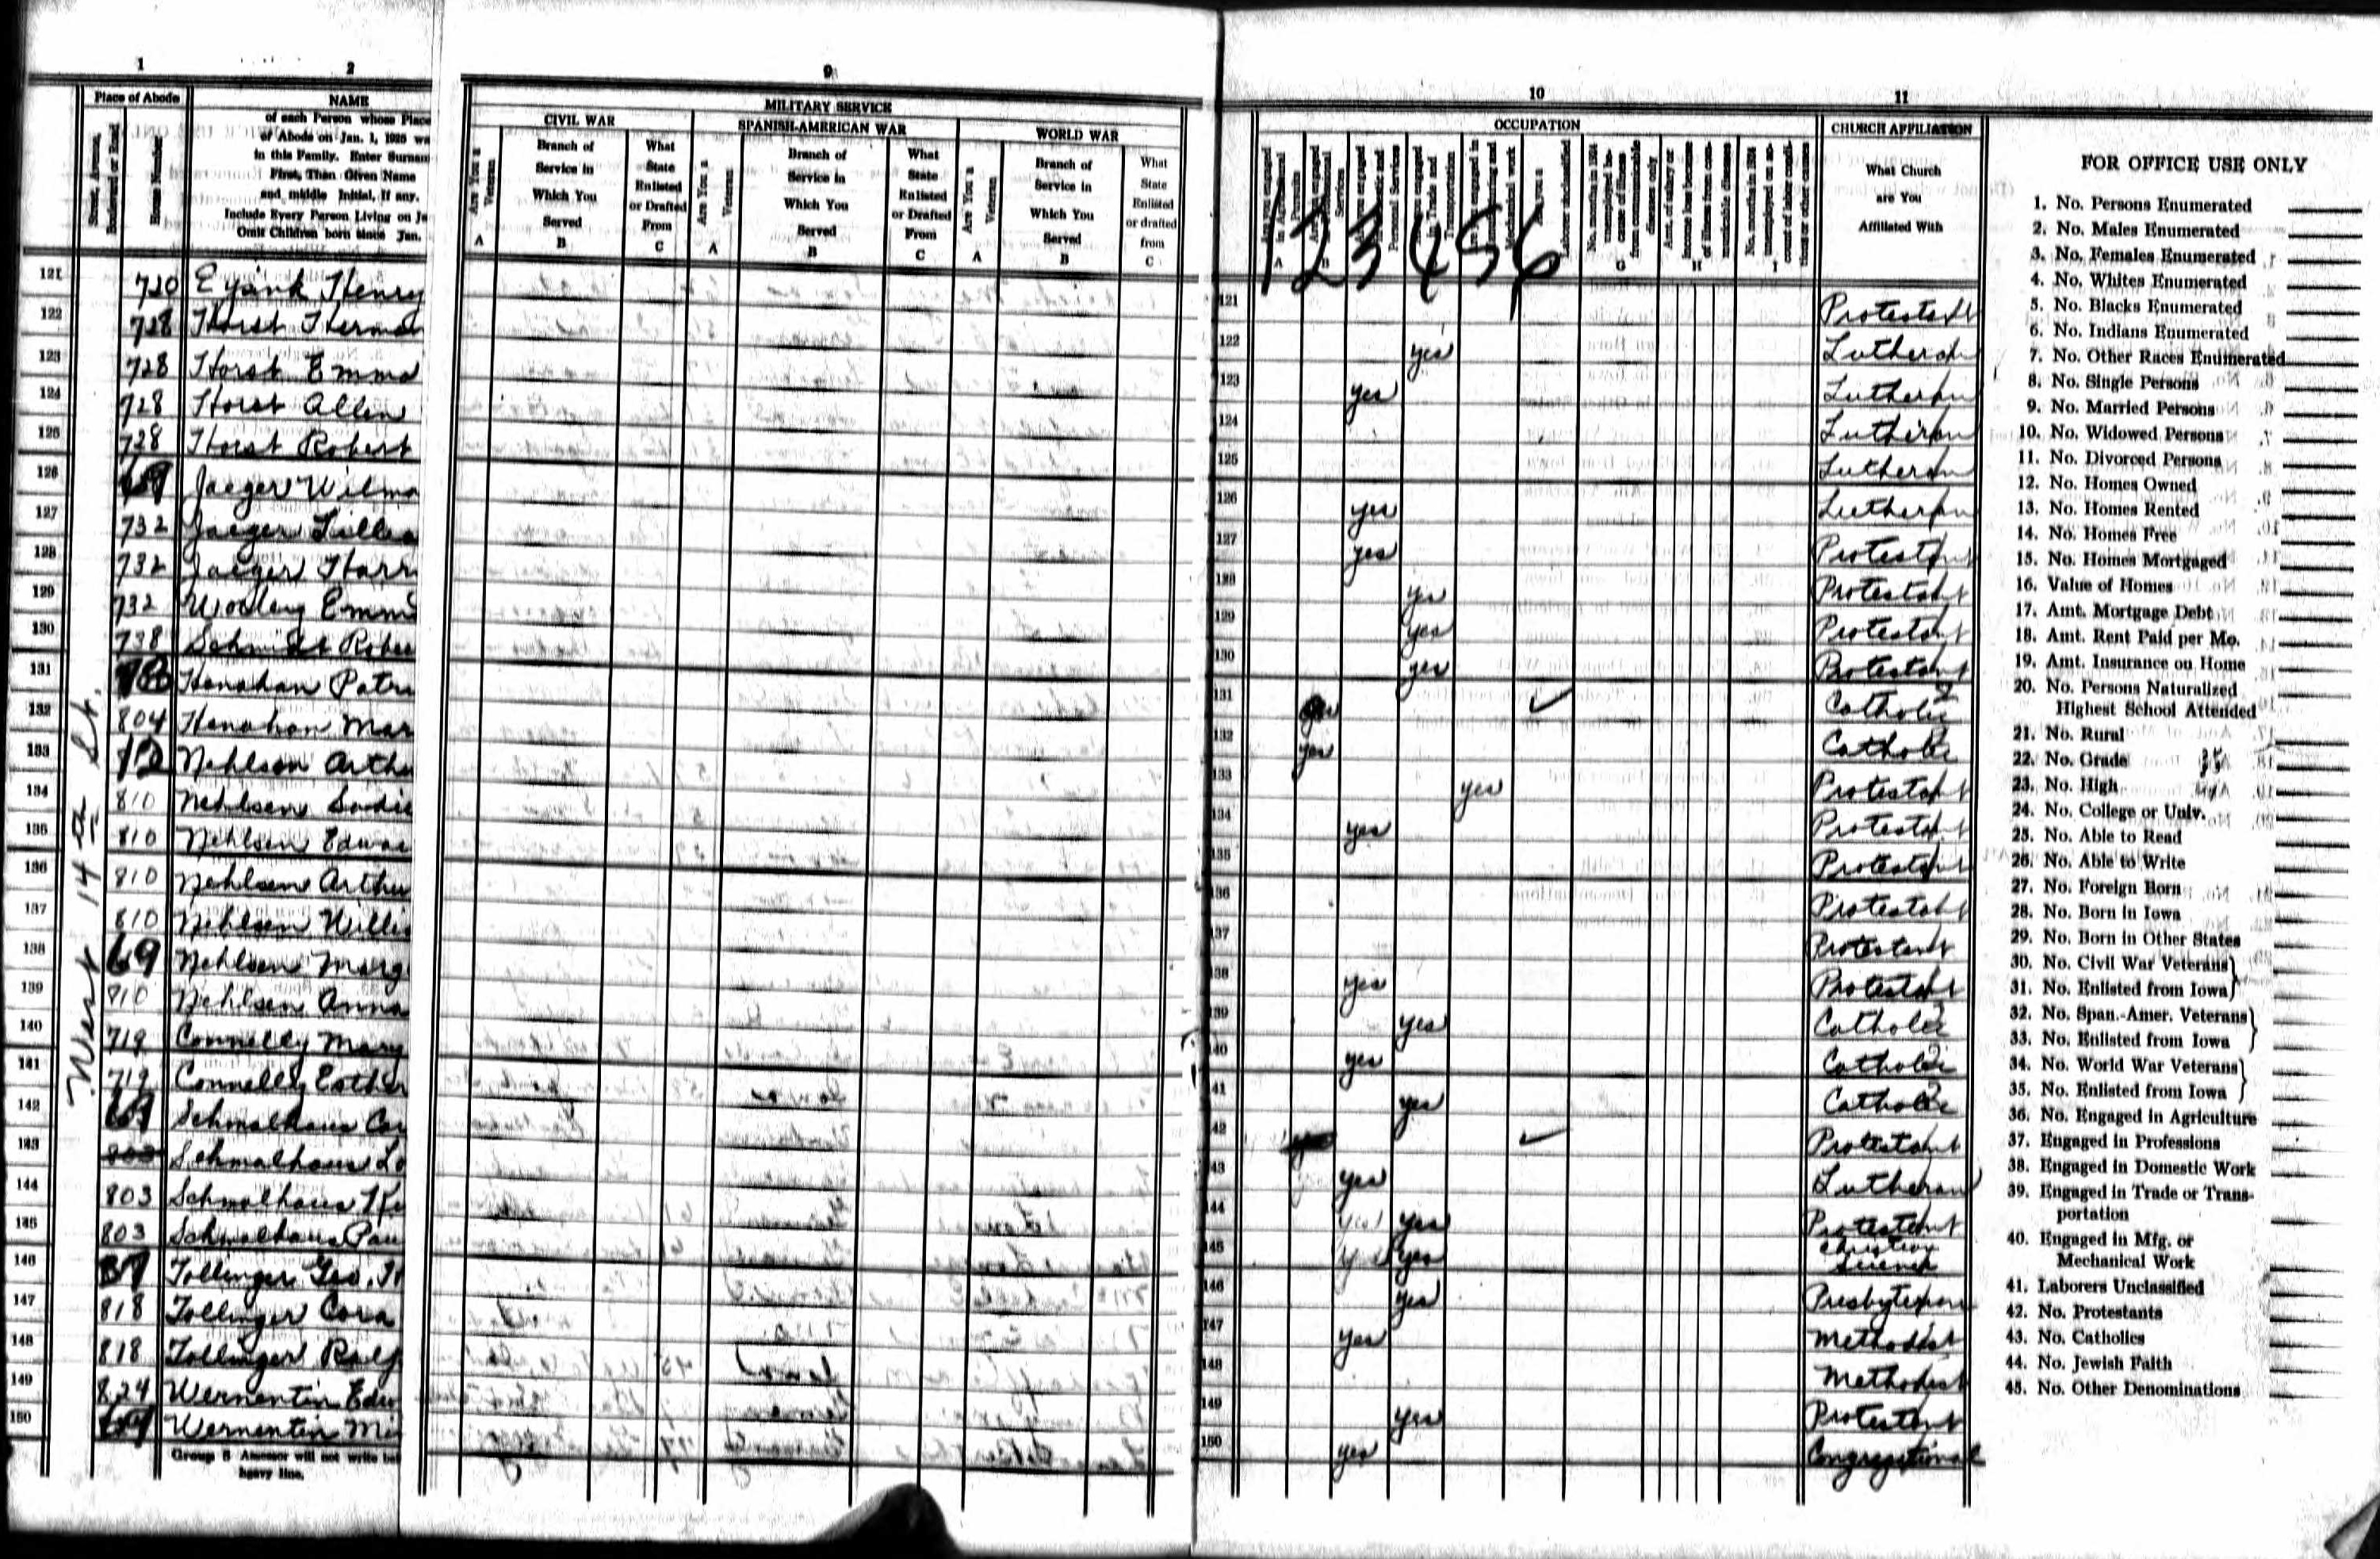 1
2
Place of Abode
Street, Avenue, Boulevard or Road
House Number
NAME
of each Person whose Place
of Abode on Jan. 1, 1925 wa
in this Family. Enter Surnam
First, Then Given Name
and middle Initial, if any.
Include Every Person Living on Ja
Omit Children born since Jan.
West 14th St.
121 720 Henry
122 728 Horst Herman
123 728 Horst Emma
124 728 Horst Allen
125 728 Horst Robert
126 69 Jaeger Wilma
127 732 Jaeger
128 732 Jaeger Harr
129 732 Emm
130 738 Schmidt Rober
131 Hanahan Patri
132 804 Hanahan Mar
133 12 Nehlsen Arthu
134 810 Nehlsen Sadie
135 810 Nehlsen Edwar
136 810 Nehlsen Arthu
137 810 Nehlsen Willi
138 69 Nehlsen Marg
139 810 Nehlsen Anna
140 719 Connelly Mary
141 719 Connelly Esther
142 69 Schmalhaus Car
143 803 Schmalhaus Lo
144 803 Schmalhaus He
145 803 Schmalhaus Pau
146 37 Tollinger Geo.
147 818 Tollinger Cora
148 818 Tollinger Ralp
149 824 Wernentin Edw
150 69 Wernentin Mi
Group 5 Assessor will not write bel
heavy line.
9
MILITARY SERVICE
CIVIL WAR
SPANISH-AMERICAN WAR
WORLD WAR
Are You a Veteran A
Branch of Service in Which You Served B
What State Enlisted or Drafted From C
Are You a Veteran A
Branch of Service in Which You Served B
What State Enlisted or Drafted From C
Are You a Veteran A
Branch of Service in Which You Served B
What State Enlisted or drafted from C
10
OCCUPATION
1 2 3 4 5 6
G H I
11
CHURCH AFFILIATION
What Church
are You
Affiliated With
121 Protestant
122 yes Lutheran
123 yes Lutheran
124 Lutheran
125 Lutheran
126 yes Lutheran
127 yes Protestant
128 yes Protestant
129 yes Protestant
130 yes Protestant
131 yes ✓ Catholic
132 yes Catholic
133 yes Protestant
134 yes Protestant
135 Protestant
136 Protestant
137 Protestant
138 yes Protestant
139 yes Catholic
140 yes Catholic
141 yes Catholic
142 ✓ Protestant
143 yes Lutheran
144 yes yes Protestant
145 yes yes Christian Science
146 yes Presbyterian
147 yes Methodist
148 Methodist
149 yes Protestant
150 yes Congregational
FOR OFFICE USE ONLY
1. No. Persons Enumerated
2. No. Males Enumerated
3. No. Females Enumerated
4. No. Whites Enumerated
5. No. Blacks Enumerated
6. No. Indians Enumerated
7. No. Other Races Enumerated
8. No. Single Persons
9. No. Married Persons
10. No. Widowed Persons
11. No. Divorced Persons
12. No. Homes Owned
13. No. Homes Rented
14. No. Homes Free
15. No. Homes Mortgaged
16. Value of Homes
17. Amt. Mortgage Debt
18. Amt. Rent Paid per Mo.
19. Amt. Insurance on Home
20. No. Persons Naturalized
Highest School Attended
21. No. Rural
22. No. Grade
23. No. High
24. No. College or Univ.
25. No. Able to Read
26. No. Able to Write
27. No. Foreign Born
28. No. Born in Iowa
29. No. Born in Other States
30. No. Civil War Veterans
31. No. Enlisted from Iowa
32. No. Span.-Amer. Veterans
33. No. Enlisted from Iowa
34. No. World War Veterans
35. No. Enlisted from Iowa
36. No. Engaged in Agriculture
37. Engaged in Professions
38. Engaged in Domestic Work
39. Engaged in Trade or Trans-
portation
40. Engaged in Mfg. or
Mechanical Work
41. Laborers Unclassified
42. No. Protestants
43. No. Catholics
44. No. Jewish Faith
45. No. Other Denominations